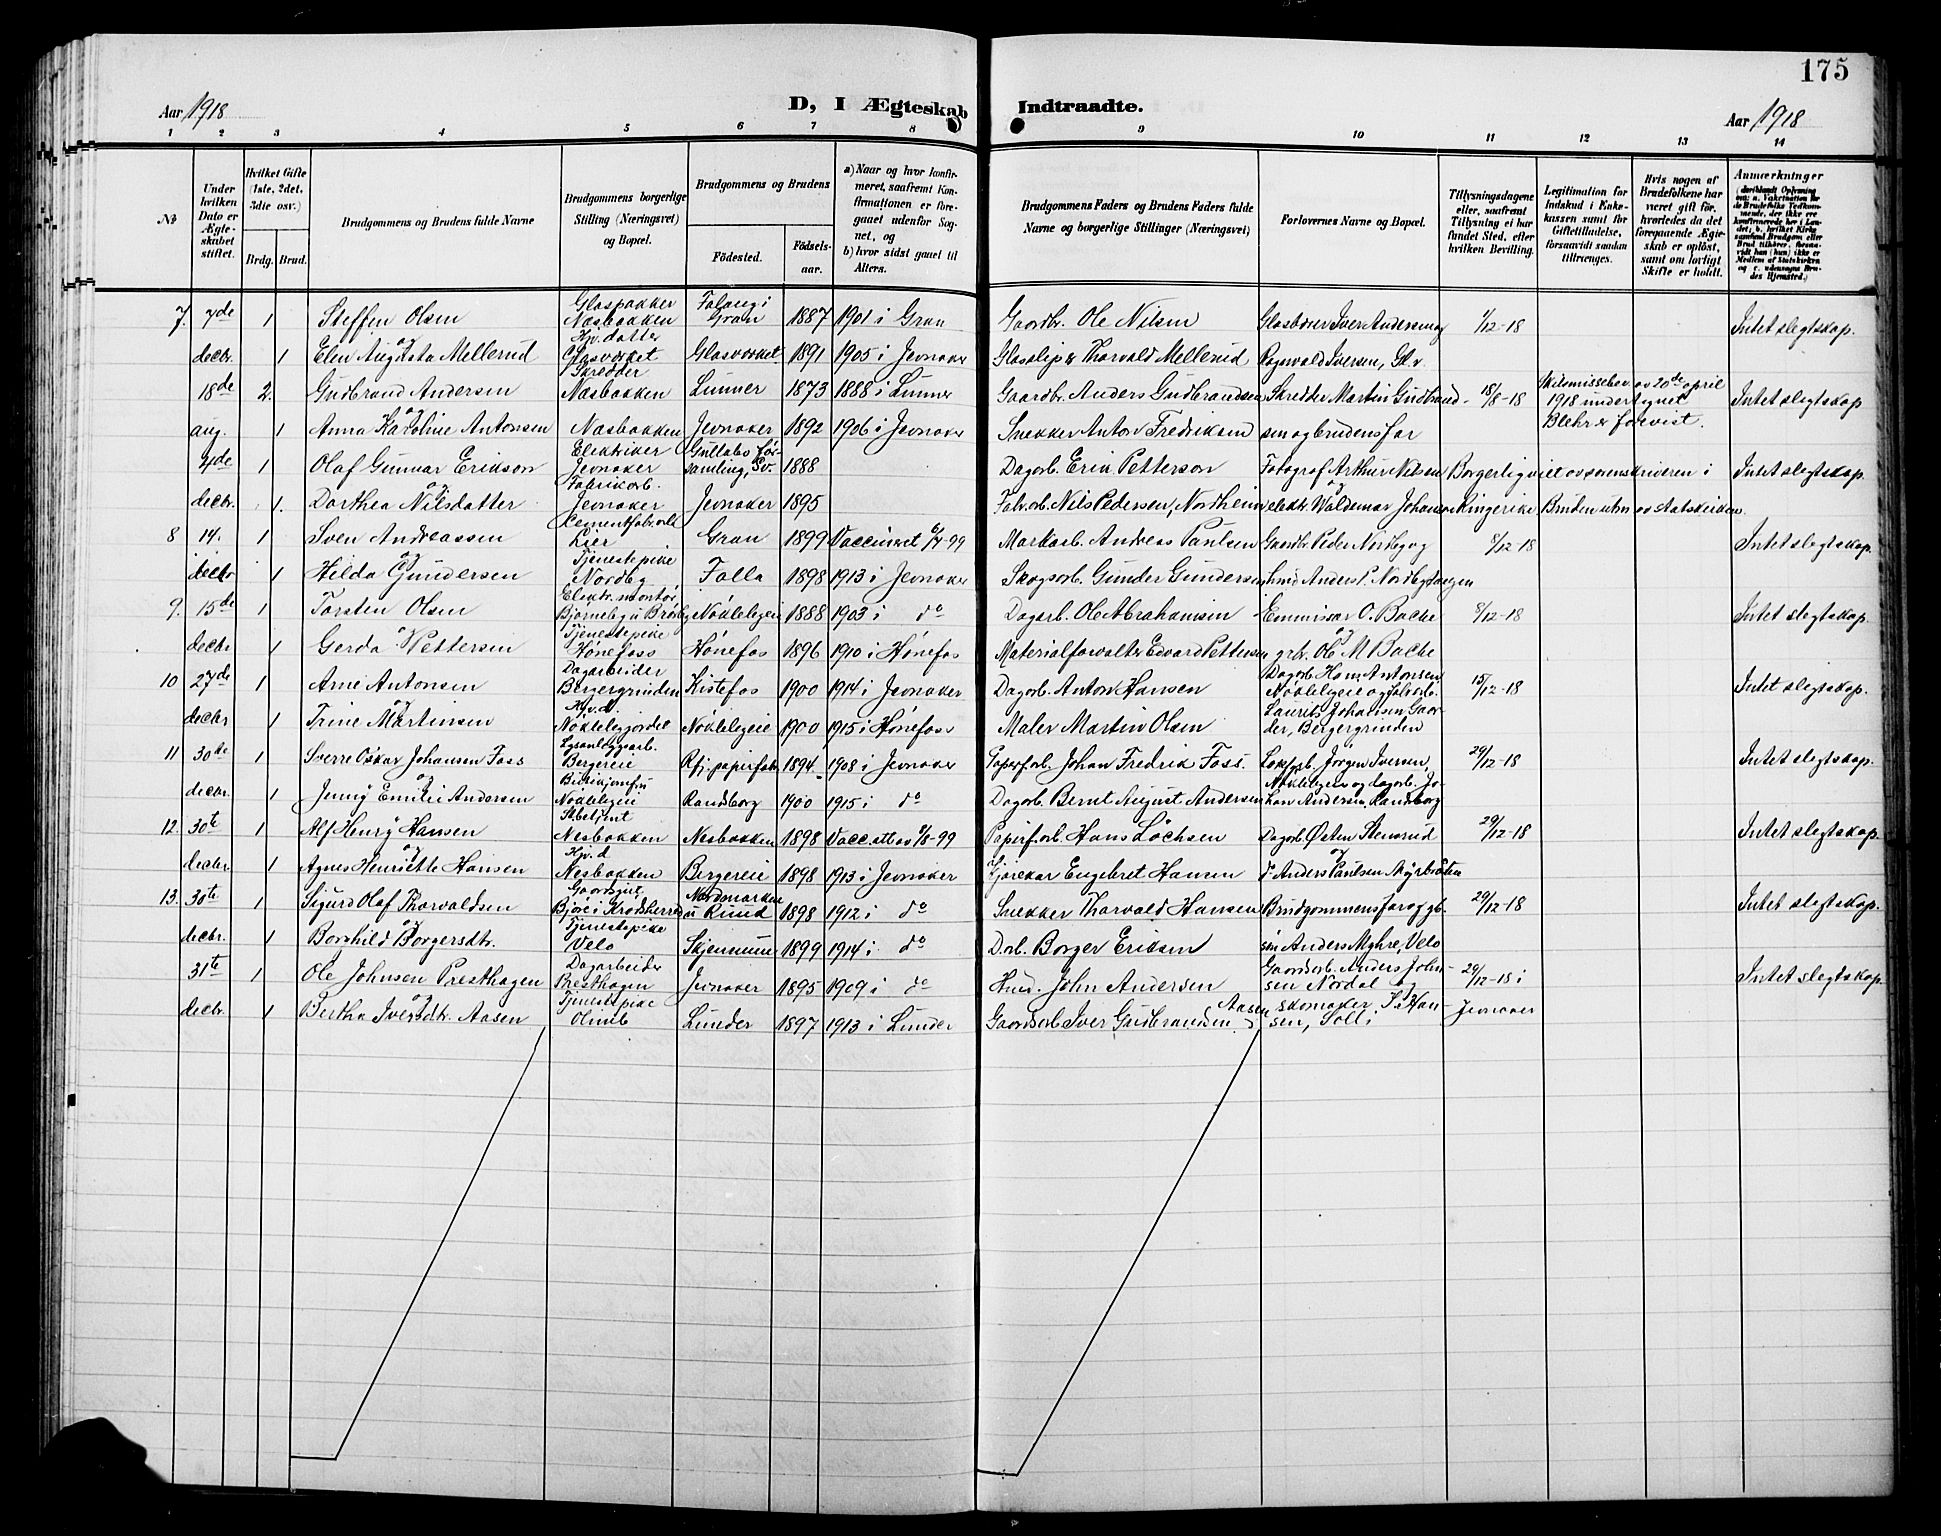 175
Aar 1918
D, I Ægteskab Indtraadte.
Aar 1918
1 2 3 4 5 6 7 8 9 10 11 12 13 14
№
Under hvilken Dato er Ægteskabet stiftet.
Hvilket Gifte (1ste, 2det, 3die osv.)
Brdg. Brud.
Brudgommens og Brudens fulde Navne
Brudgommens borgerlige Stilling (Næringsvei) og Bopæl.
Brudgommens og Brudens
Födested.
Födselsaar.
a) Naar og hvor konfirmeret, saafremt Konfirmationen er foregaaet udenfor Sognet, og
b) hvor sidst gaaet til Alters.
Brudgommens Faders og Brudens Faders fulde Navne og borgerlige Stillinger (Næringsvei)
Forlovernes Navne og Bopæl.
Tillysningsdagene eller, saafremt Tillysning ei har fundet Sted, efter hvilken Bevilling.
Legitimation for Indskud i Enkekassen samt for Giftetilladelse, forsaavidt saadan tiltrænges.
Hvis nogen af Brudefolkene har været gift för, hvorledes da det foregaaende Ægteskab er oplöst, samt om lovligt Skifte er holdt.
Anmærkninger
7. 7de 1 Steffen Olsen Glaspakker Næsbakken Gran 1887 1901 i Gran Gaardbr. Ole Nilsen Glasbærer Iver Andersen og 1/12-18 Intet slegtskap.
og
decbr. 1 Elen Augusta Mellerud Hjv. datter Glasverket Glasverket 1891 1905 i Jevnaker Glasslip & Thorvald Mellerud Ragnvald Iversen, Gl.v.
18de 2. Gudbrand Andersen Skredder Næsbakken Lunner 1873 1888 i Lunner Gaardbr. Anders Gudbrandsen Skredder Martin Gudbrand- 18/8-18 Skilsmissebev. av 20de april 1918 undertegnet Blehr er forevist. Intet slegtskap
og
aug. 1 Anna Karoline Antonsen Næsbakken Jevnaker 1892 1906 i Jevnaker Snekker Anton Fredriksen sen og brudens far
4de 1 Olaf Gunnar Erikson Elektriker Jevnaker samling, Sv. 1888 Dagarb. Erik Petterson Fotograf Arthur Nilsen Borgerlig viet av sorenskriveren i Intet slegtskap.
og
decbr. 1. Dorthea Nilsdatter Fabrikarb. Jevnaker Jevnaker 1895 Fabr.arb. Nils Pedersen, Nordheim elektr. Waldemar Johansen Ringerike Bruden utm. av statskirken.
8 14. 1 Sven Andreassen Cementfabr.arb. Lier Gran 1899 Vaccineret 6/7-99 Markarb. Andreas Paulsen Gaardbr. Peder Nordby og 8/12-18 Intet slegtskap.
og
decbr 1 Hilda Gundersen Tjenestepike Nordby Falla 1898 1913 i Jevnaker Skogsarb. Gunder Gundersen smed Anders P. Nordbyhagen
9. 15de 1 Torsten Olsen Elektr. montør Nøkleleeie 1888 1903 i do Dagarb. Ole Abrahamsen Emmissær O. Bache 8/12-18 Intet slegtskap.
og
decbr 1 Gerda Pettersen Tjenestepike Hønefoss Hønefos 1896 1910 i Hønefos Materialforvalter Edvard Pettersen grbr. Ole M Bache
10 27de 1 Arne Antonsen Dagarbeider Bergergrinden Kistefos 1900 1914 i Jevnaker Dagarb. Anton Hansen Dagarb. Hans Antonsen 15/12-18 Intet slegtskap.
og
decbr 1 Trine Martinsen Hjv. d. Nøklebyjordet Nøklebyeie 1900 1915 i Hønefos Maler Martin Olsen Laurits Johansen Gaarder, Bergergrinden
11 30te 1 Sverre Oskar Johansen Foss Lysanlæggsarb. Bergereie Rfj. papirfabr 1894 1908 i Jevnaker Papirfarb. Johan Fredrik Foss. Jørgen Iversen, 29/12-18 Intet slegtskap.
og
decbr. 1 Jenny Emilie Andersen Nøklebyeie Randsborg 1900 1915 i do Dagarb. Bernt August Andersen Nøklebyeie og dagarb. Johan Andersen, Randsborg
12. 30te 1 Alf Henry Hansen Nesbakken Nesbakken 1898 Papirfarb. Hans Løchsen Dagarb. Østen Stensrud 29/12-18 Intet slegtskap.
og
decbr. 1 Agnes Henriette Hansen Hjv. d Nesbakken Bergereie 1898 1913 i Jevnaker Kjørekar Engebret Hansen Anders Paulsen Myrbråten
13. 30te 1 Sigurd Olaf Thorvaldsen Gaardsgut. Bjøre i Krødsherred Nordmarken u Ruud 1898 1912 i do Snekker Thorvald Hansen Brudgommens far og gb. 29/12-18 Intet slegtskap.
og
decbr. 1 Borghild Borgersdtr. Tjenestepike Velo Skjennum 1899 1914 i do D.arb. Borger Eriksen Anders Myhre, Velo
31te 1 Ole Johnsen Presthagen Dagarbeider Presthagen Jevnaker 1895 1909 i do Husd. John Andersen Gaardsarb. Anders Johnsen Nordal og 29/12-18 i Jevnaker Intet slegtskap.
og
decbr. 1 Bertha Iversdtr. Aasen Tjenestepike Olimb Lunder 1897 1913 i Lunder Gaardsarb. Iver Gudbrandsen Aasen skomaker Hansen, Solli